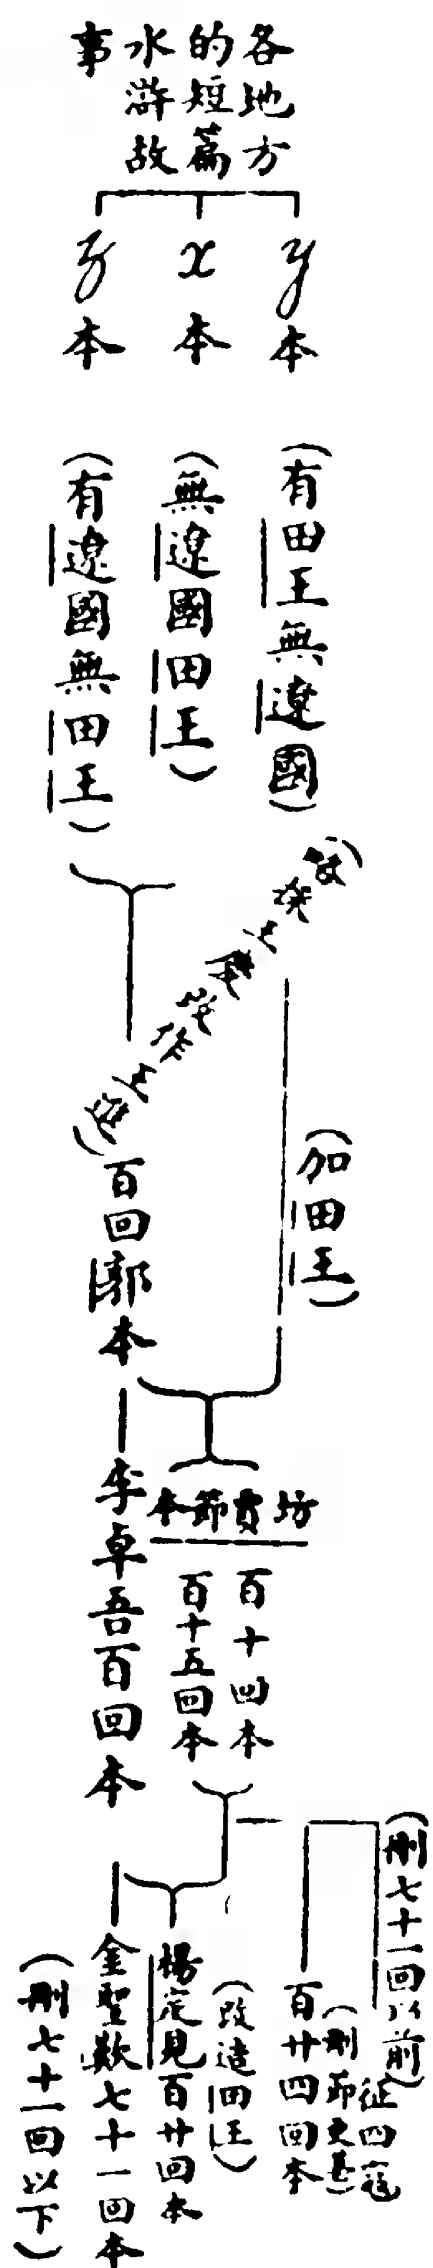 各地方
的短篇
水滸故
事
y本
x本
z本
(有田王無遼國)
(無遼國田王)
(有遼國無田王)
(加田王)
百回郭本
坊賈節本
百十回本
百十五回本
李卓吾百回本
(刪七十一回以前)
征四寇
百廿四回本
(刪節更甚)
楊定見百廿回本
(改造田王)
金聖歎七十一回本
(刪七十一回以下)